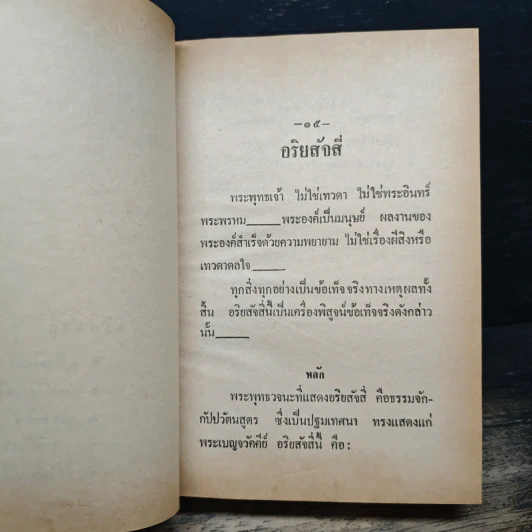 —๑๕—
อริยสัจสี่
พระพุทธเจ้า ไม่ใช่เทวดา ไม่ใช่พระอินทร์
พระพรหม_____พระองค์เป็นมนุษย์ ผลงานของ
พระองค์สำเร็จด้วยความพยายาม ไม่ใช่เรื่องผีสิงหรือ
เทวดาดลใจ_____
ทุกสิ่งทุกอย่างเป็นข้อเท็จจริงทางเหตุผลทั้ง
สิ้น อริยสัจสี่นี้เป็นเครื่องพิสูจน์ข้อเท็จจริงดังกล่าว
นั้น_____
หลัก
พระพุทธวจนะที่แสดงอริยสัจสี่ คือธรรมจัก-
กัปปวัตนสูตร ซึ่งเป็นปฐมเทศนา ทรงแสดงแก่
พระเบญจวัคคีย์ อริยสัจสี่นี้ คือ: